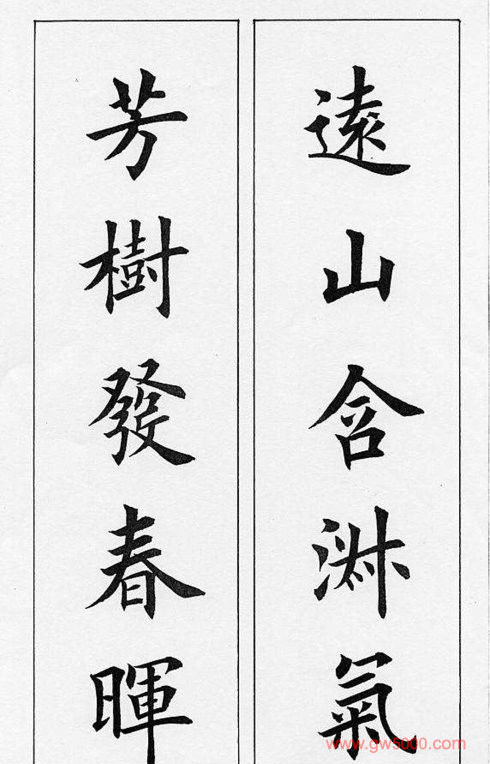 遠山含淑氣
芳樹發春暉
www.gw5000.com